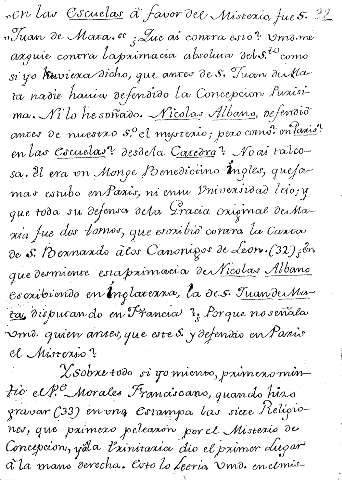 "en las Escuelas á favor del Misterio, fue S. 
"Juan de Mata." ¿Que ai contra esto? Vmd. me
arguie contra la primacia absoluta del S.to como
si yo huviera dicho, que antes de S. Juan de Ma-
ta nadie havia defendido la Concepcion Purisi-
ma. Ni lo he soñado. Nicolas Albano, defendió
antes de nuestro S.o el mysterio; pero como? en Paris?
en las Escuelas? desde la Catedra? No ai tal co-
sa. El era un Monge Benedictino Ingles, que ja-
mas estubo en Paris, ni en su Universidad leió; y
que toda su defensa de la Gracia original de Ma-
ria fue dos tomos, que escribió contra la Carta
de S. Bernardo á los Canonigos de Leon. (32) ¿En
que desmiente esta primacia de Nicolas Albano
escribiendo en Inglaterra, la de S. Juan de Ma-
ta, disputando en Francia? ¿Porque no señala
Vmd. quien antes, que este S. y defendió en Paris
el Misterio?
Y sobre todo si yo miento, primero min-
tió el P.e Morales Franciscano, quando hizo
gravar (33) en una Estampa las siete Religio-
nes, que primero pelearon por el Misterio de
Concepcion, y a la Trinitaria dio el primer lugar
á la mano derecha. Esto lo leeria Vmd. en el mis-